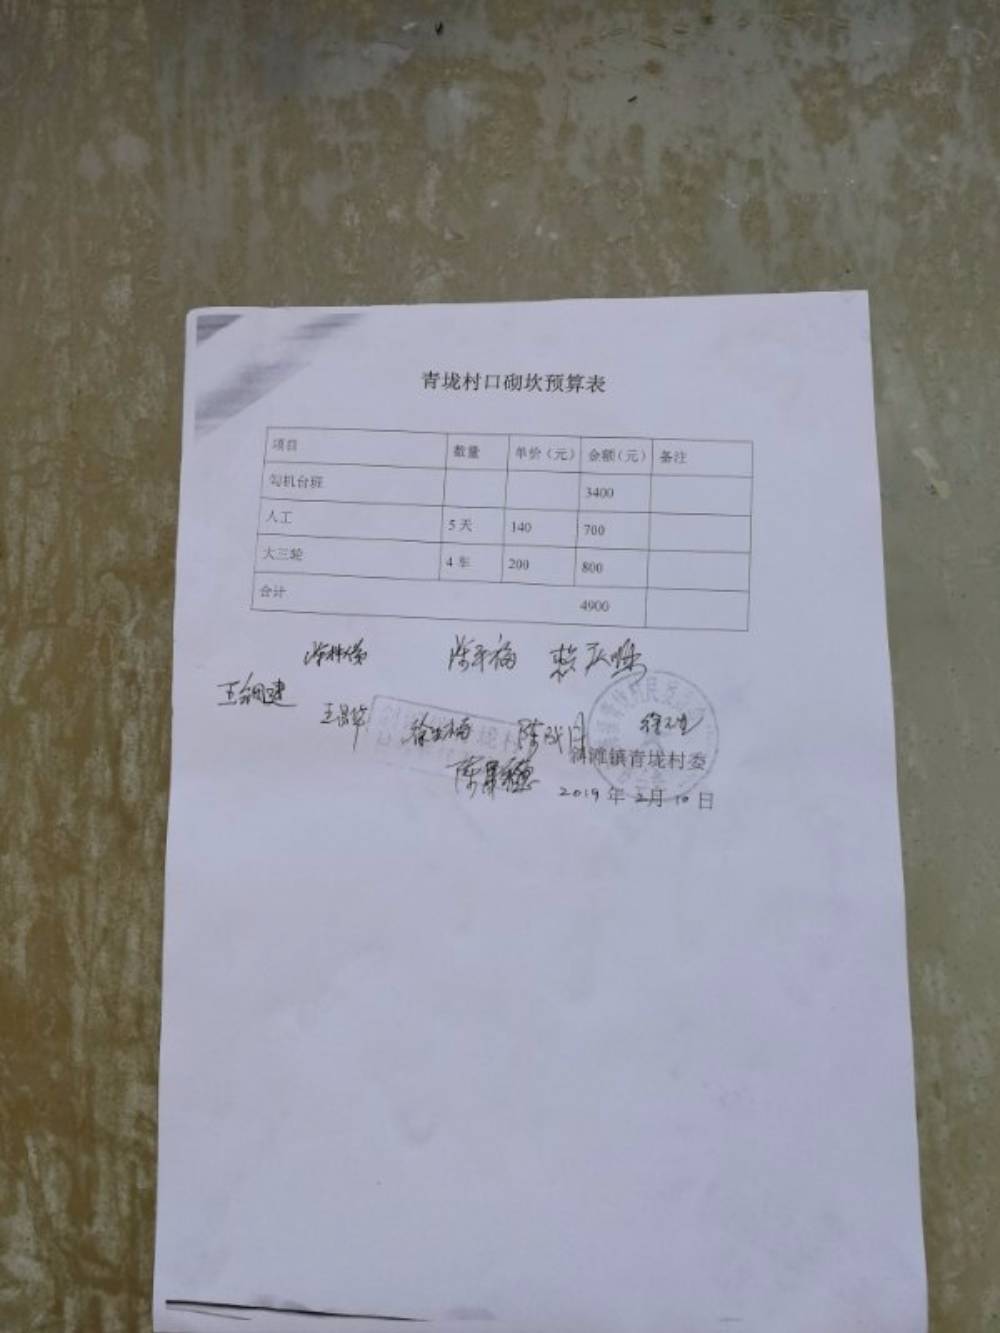 青垅村口砌坎预算表
项目 数量 单价（元） 金额（元） 备注
勾机台班 3400
人工 5天 140 700
大三轮 4车 200 800
合计 4900
陈平福
王昌华 陈成月
斜滩镇青垅村委
2019年2月10日